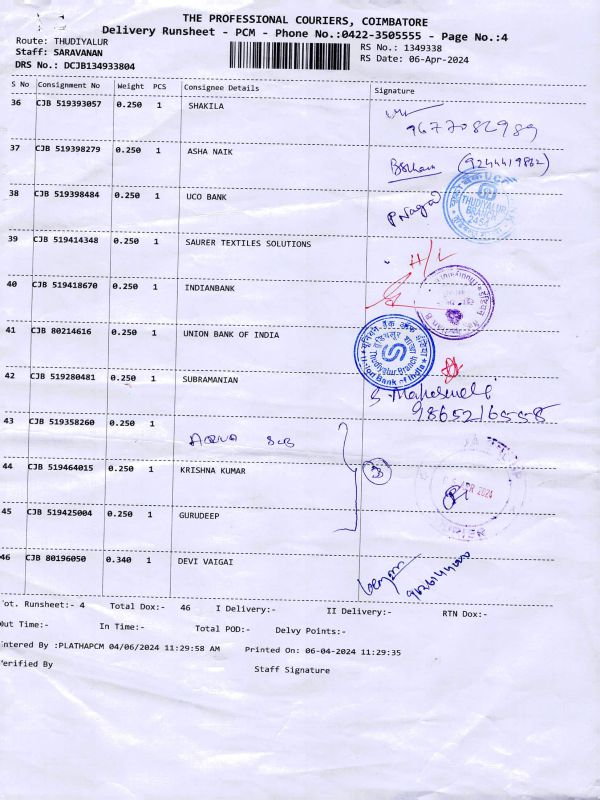 THE PROFESSIONAL COURIERS, COIMBATORE
Delivery Runsheet - PCM - Phone No.:0422-3505555 - Page No.:4
Route: THUDIYALUR
RS No.: 1349338
Staff: SARAVANAN
RS Date: 06-Apr-2024
DRS No.: DCJB134933804
S No Consignment No Weight PCS Consignee Details Signature
36 CJB 519393057 0.250 1 SHAKILA
9677082989
37 CJB 519398279 0.250 1 ASHA NAIK
38 CJB 519398484 0.250 1 UCO BANK
THUDIYALUR
BRANCH
39 CJB 519414348 0.250 1 SAURER TEXTILES SOLUTIONS
H/L
40 CJB 519418670 0.250 1 INDIANBANK
41 CJB 80214616 0.250 1 UNION BANK OF INDIA
यूनियन बैंक ऑफ इंडिया
Thudiyalur Branch
Union Bank of India
42 CJB 519280481 0.250 1 SUBRAMANIAN
9865216558
43 CJB 519358260 0.250 1
44 CJB 519464015 0.250 1 KRISHNA KUMAR
3
APR 2024
45 CJB 519425004 0.250 1 GURUDEEP
46 CJB 80196050 0.340 1 DEVI VAIGAI
ot. Runsheet:- 4 Total Dox:- 46 I Delivery:- II Delivery:- RTN Dox:-
Out Time:- In Time:- Total POD:- Delvy Points:-
ntered By :PLATHAPCM 04/06/2024 11:29:58 AM Printed On: 06-04-2024 11:29:35
erified By Staff Signature